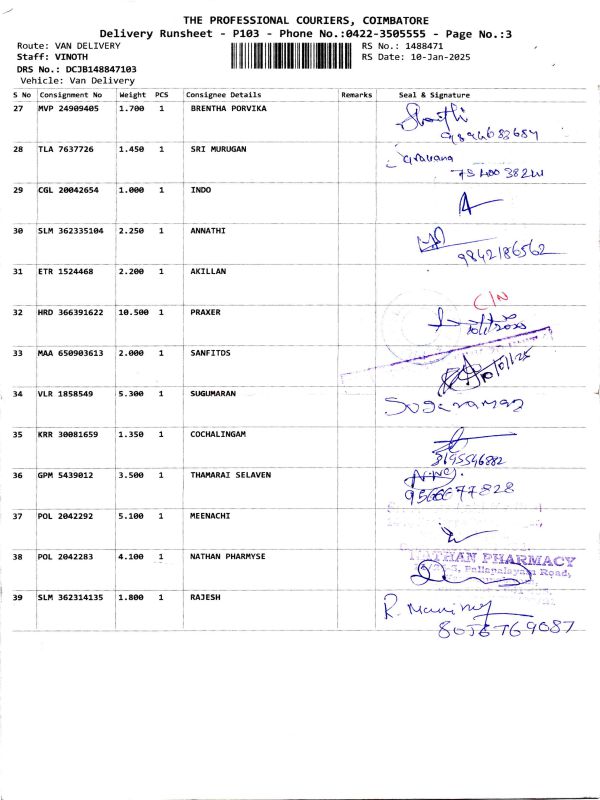 THE PROFESSIONAL COURIERS, COIMBATORE
Delivery Runsheet - P103 - Phone No.:0422-3505555 - Page No.:3
Route: VAN DELIVERY RS No.: 1488471
Staff: VINOTH RS Date: 10-Jan-2025
DRS No.: DCJB148847103
Vehicle: Van Delivery
S No Consignment No Weight PCS Consignee Details Remarks Seal & Signature
27 MVP 24909405 1.700 1 BRENTHA PORVIKA
28 TLA 7637726 1.450 1 SRI MURUGAN
29 CGL 20042654 1.000 1 INDO
30 SLM 362335104 2.250 1 ANNATHI
9842186562
31 ETR 1524468 2.200 1 AKILLAN
C/N
32 HRD 366391622 10.500 1 PRAXER
33 MAA 650903613 2.000 1 SANFITDS
10/01/25
34 VLR 1858549 5.300 1 SUGUMARAN
35 KRR 30081659 1.350 1 COCHALINGAM
36 GPM 5439012 3.500 1 THAMARAI SELAVEN
9566677828
37 POL 2042292 5.100 1 MEENACHI
38 POL 2042283 4.100 1 NATHAN PHARMYSE
NATHAN PHARMACY
Pallapalayam Road,
39 SLM 362314135 1.800 1 RAJESH